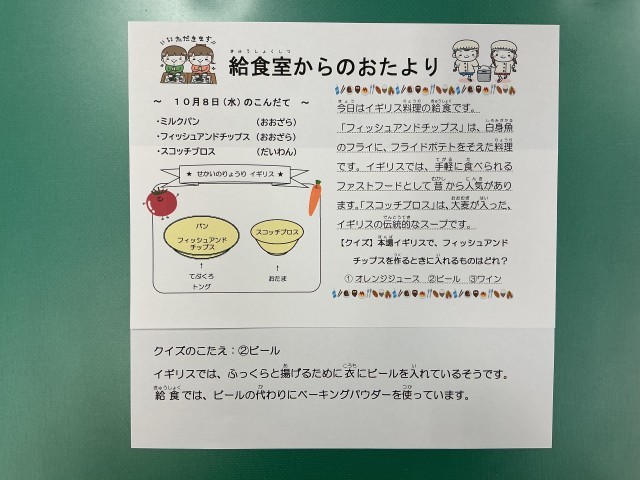 いただきます
給食室からのおたより
～ 10月8日(水)のこんだて ～
・ミルクパン (おおざら)
・フィッシュアンドチップス (おおざら)
・スコッチブロス (だいわん)
★ せかいのりょうり イギリス ★
パン
フィッシュアンド
チップス
スコッチブロス
↑
てぶくろ
トング
↑
おたま
今日はイギリス料理の給食です。
「フィッシュアンドチップス」は、白身魚
のフライに、フライドポテトをそえた料理
です。イギリスでは、手軽に食べられる
ファストフードとして昔から人気があり
ます。「スコッチブロス」は、大麦が入った、
イギリスの伝統的なスープです。
【クイズ】本場イギリスで、フィッシュアンド
チップスを作るときに入れるものはどれ?
①オレンジジュース ②ビール ③ワイン
クイズのこたえ：②ビール
イギリスでは、ふっくらと揚げるために衣にビールを入れているそうです。
給食では、ビールの代わりにベーキングパウダーを使っています。